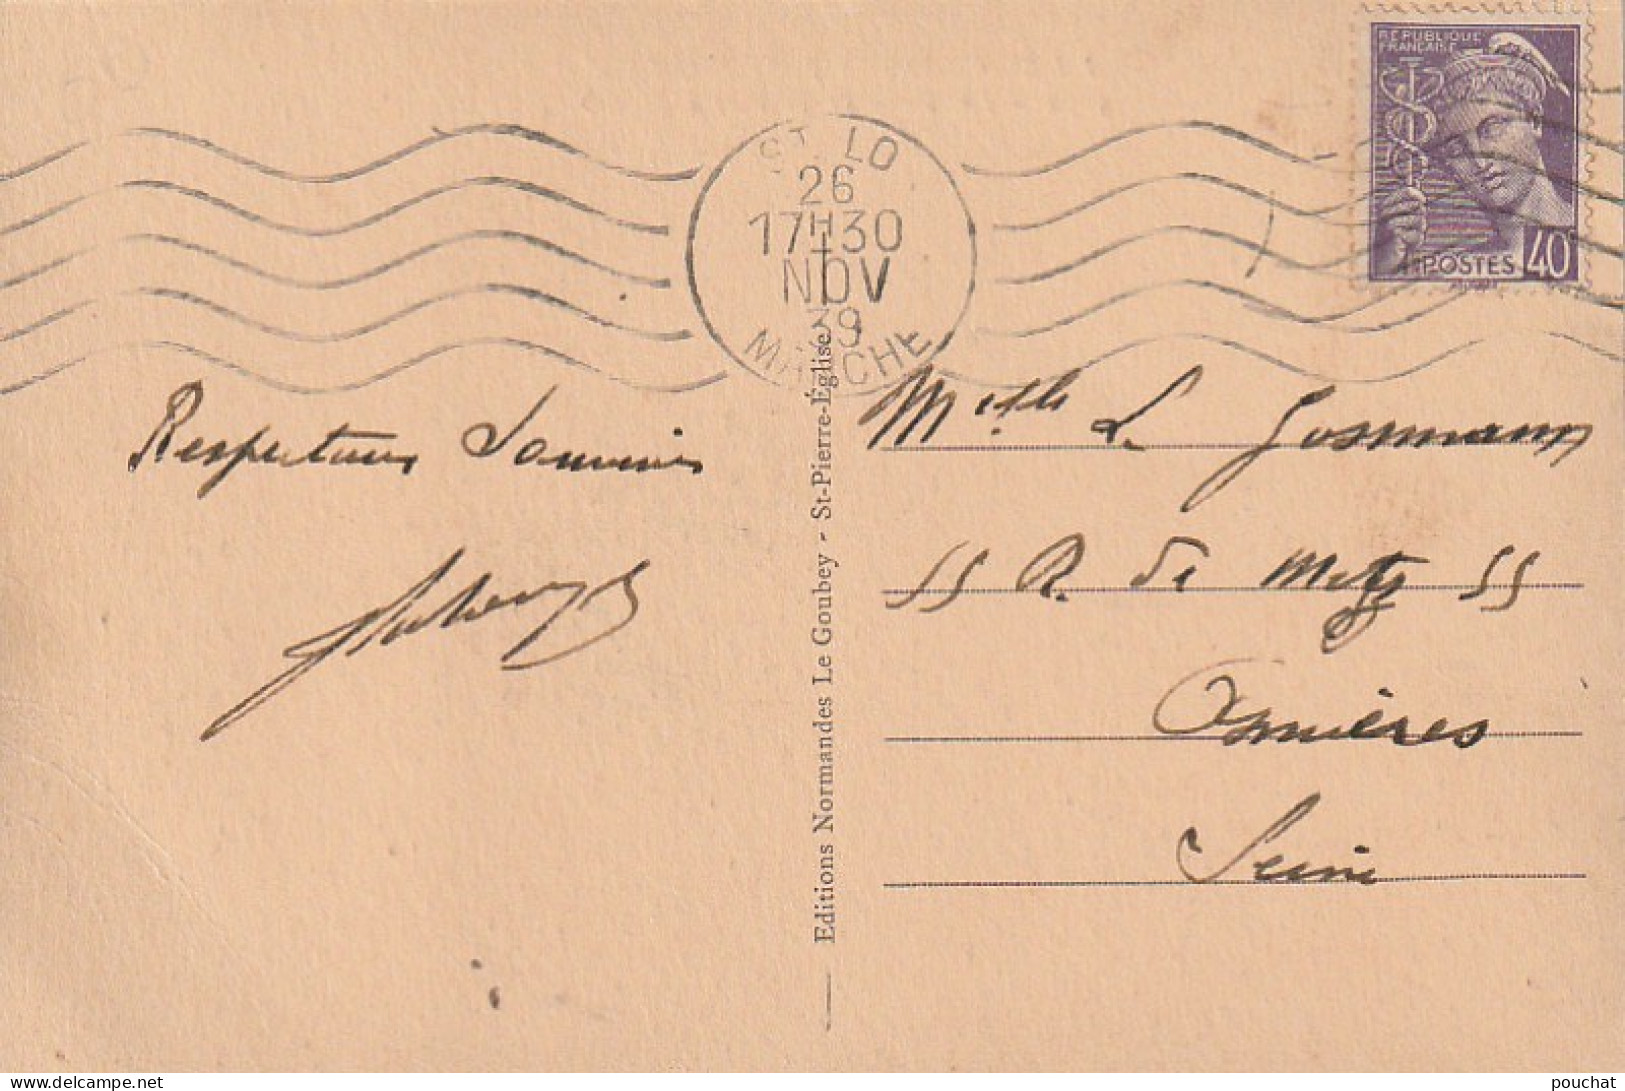 RÉPUBLIQUE
FRANÇAISE
POSTES 40
ST. LO
26
17H30
NOV
39
MANCHE
Respectueux Souvenirs
Melle L. Gossmann
55 R. de Metz 55
Asnières
Seine
Editions Normandes Le Goubey - St-Pierre-Église
delcampe.net
pouchat